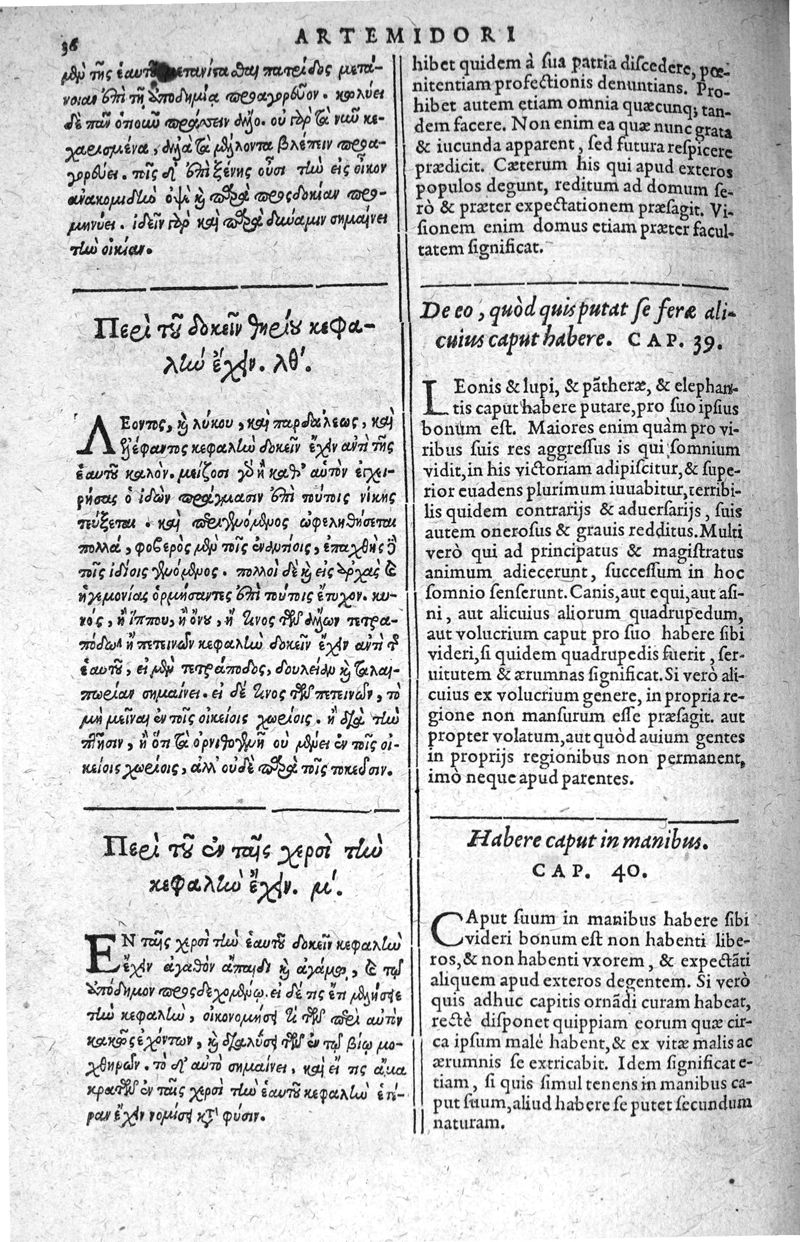 36
ARTEMIDORI
μὲν τῆς ἑαυτοῦ μετανίστασθαι πατρίδος μετά-
νοιαν ἐπὶ τῇ ἀποδημίᾳ προαγορεῦον. κωλύει
δὲ πᾶν ὁτιοῦν πράττειν
χαρισμένα, ἀλλὰ τὰ μέλλοντα βλέπειν προα-
γορεύει. τοῖς δ' ἐπὶ ξένης οὖσι τὴν εἰς οἶκον
ἀνακομιδὴν ὀψὲ καὶ παρὰ προσδοκίαν προ-
μηνύει. ἰδεῖν γὰρ καὶ παρὰ δύναμιν σημαίνει
τὴν οἰκίαν.
Περὶ τοῦ δοκεῖν θηρίου κεφα-
λὴν ἔχειν. λθ'.
ΛΕοντος, καὶ λύκου, καὶ παρδάλεως, καὶ
ἐλέφαντος κεφαλὴν δοκεῖν ἔχειν ἀντὶ τῆς
ἑαυτοῦ καλόν. μείζοσι γὰρ ἢ καθ' αὑτὸν ἐγχει-
ρήσας ὁ ἰδὼν πράγμασιν ἐπὶ τούτοις νίκης
τεύξεται. καὶ περιγενόμενος ὠφεληθήσεται
πολλά, φοβερὸς μὲν τοῖς ἐναντίοις, ἐπαχθὴς δὲ
τοῖς ἰδίοις γενόμενος. πολλοὶ δὲ καὶ εἰς ἀρχὰς καὶ
ἡγεμονίας ὁρμήσαντες ἐπὶ τούτοις ἔτυχον. κυ-
νός, ἢ ἵππου, ἢ ὄνου, ἤ τινος τῶν ἄλλων τετρα-
πόδων ἢ πετεινῶν κεφαλὴν δοκεῖν ἔχειν ἀντὶ τῆς
ἑαυτοῦ, εἰ μὲν τετράποδος, δουλείαν καὶ ταλαι-
πωρίαν σημαίνει. εἰ δέ τινος τῶν πετεινῶν, τὸ
μὴ μεῖναι ἐν τοῖς οἰκείοις χωρίοις. ἢ διὰ τὴν
πτῆσιν, ἢ ὅτι τὰ ὀρνίθων γένη οὐ μένει ἐν τοῖς οἰ-
κείοις χωρίοις, ἀλλ' οὐδὲ παρὰ τοῖς τοκεῦσιν.
Περὶ τοῦ ἐν ταῖς χερσὶ τὴν
κεφαλὴν ἔχειν. μ'.
ΕΝ ταῖς χερσὶ τὴν ἑαυτοῦ δοκεῖν κεφαλὴν
ἔχειν ἀγαθὸν ἄπαιδι καὶ ἀγάμῳ, καὶ τῷ
ἀπόδημον προσδεχομένῳ. εἰ δέ τις ἐπιμελήσηται
τὴν κεφαλήν, οἰκονομήσει τι τῶν περὶ αὐτὸν
κακῶς ἐχόντων, καὶ διαλύσει τῶν ἐν τῷ βίῳ μο-
χθηρῶν. τὸ δ' αὐτὸ σημαίνει, καὶ εἴ τις ἅμα
κρατῶν ἐν ταῖς χερσὶ τὴν ἑαυτοῦ κεφαλὴν ἑτέ-
ραν ἔχειν νομίσῃ κατὰ φύσιν.
hibet quidem à sua patria discedere, pœ-
nitentiam profectionis denuntians. Pro-
hibet autem etiam omnia quæcunq; tan-
dem facere. Non enim ea quæ nunc grata
& iucunda apparent, sed futura respicere
prædicit. Cæterum his qui apud exteros
populos degunt, reditum ad domum se-
rò & præter expectationem præsagit. Vi-
sionem enim domus etiam præter facul-
tatem significat.
De eo, quòd quis putat se feræ ali-
cuius caput habere. CAP. 39.
LEonis & lupi, & pãtheræ, & elephan-
tis caput habere putare, pro suo ipsius
bonum est. Maiores enim quàm pro vi-
ribus suis res aggressus is qui somnium
vidit, in his victoriam adipiscitur, & supe-
rior euadens plurimum iuuabitur, terribi-
lis quidem contrarijs & aduersarijs, suis
autem onerosus & grauis redditus. Multi
verò qui ad principatus & magistratus
animum adiecerunt, successum in hoc
somnio senserunt. Canis, aut equi, aut asi-
ni, aut alicuius aliorum quadrupedum,
aut volucrium caput pro suo habere sibi
videri, si quidem quadrupedis fuerit, ser-
uitutem & ærumnas significat. Si verò ali-
cuius ex volucrium genere, in propria re-
gione non mansurum esse præsagit. aut
propter volatum, aut quòd auium gentes
in proprijs regionibus non permanent,
imò neque apud parentes.
Habere caput in manibus.
CAP. 40.
CAput suum in manibus habere sibi
videri bonum est non habenti libe-
ros, & non habenti vxorem, & expectãti
aliquem apud exteros degentem. Si verò
quis adhuc capitis ornãdi curam habeat,
rectè disponet quippiam eorum quæ cir-
ca ipsum malé habent, & ex vitæ malis ac
ærumnis se extricabit. Idem significat e-
tiam, si quis simul tenens in manibus ca-
put suum, aliud habere se putet secundum
naturam.